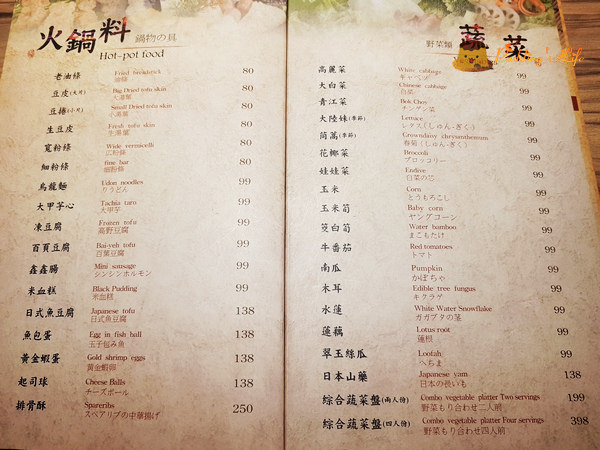 火鍋料 鍋物の具
Hot-pot food
老油條 Fried breadstick 80
油條
豆皮(大片) Big Dried tofu skin 80
大湯葉
豆捲(小片) Small Dried tofu skin 80
小湯葉
生豆皮 Fresh tofu skin 80
生湯葉
寬粉條 Wide vermicelli 80
広粉條
細粉條 fine bar 80
細粉條
烏龍麵 Udon noodles 99
うどん
大甲芋心 Tachia taro 99
大甲芋
凍豆腐 Frozen tofu 99
高野豆腐
百頁豆腐 Bai-yeh tofu 99
百葉豆腐
鑫鑫腸 Mini sausage 99
シンシンホルモン
米血糕 Black Pudding 99
米血糕
日式魚豆腐 Japanese tofu 138
日式魚豆腐
魚包蛋 Egg in fish ball 138
玉子包み魚
黃金蝦蛋 Gold shrimp eggs 138
黄金蝦卵
起司球 Cheese Balls 138
チーズボール
排骨酥 Spareribs 250
スペアリブの中華揚げ
野菜類 蔬菜
高麗菜 White cabbage 99
キャベツ
大白菜 Chinese cabbage 99
白菜
青江菜 Bok Choy 99
チンゲン菜
大陸妹(季節) Lettuce 99
レタス(しゅん-ぎく)
茼萵(季節) Crowndaisy chrysanthemum 99
春菊(しゅん-ぎく)
花椰菜 Broccoli 99
ブロッコリー
娃娃菜 Endive 99
白菜の芯
玉米 Corn 99
とうもろこし
玉米筍 Baby corn 99
ヤングコーン
筊白筍 Water bamboo 99
まこもたけ
牛番茄 Red tomatoes 99
トマト
南瓜 Pumpkin 99
かぼちゃ
木耳 Edible tree fungus 99
キクラゲ
水蓮 White Water Snowflake 99
ガガブタの茎
蓮藕 Lotus root 99
蓮根
翠玉絲瓜 Loofah 99
へちま
日本山藥 Japanese yam 138
日本の長いも
綜合蔬菜盤(兩人份) Combo vegetable platter Two servings 199
野菜もり合わせ二人前
綜合蔬菜盤(四人份) Combo vegetable platter Four servings 398
野菜もり合わせ四人前